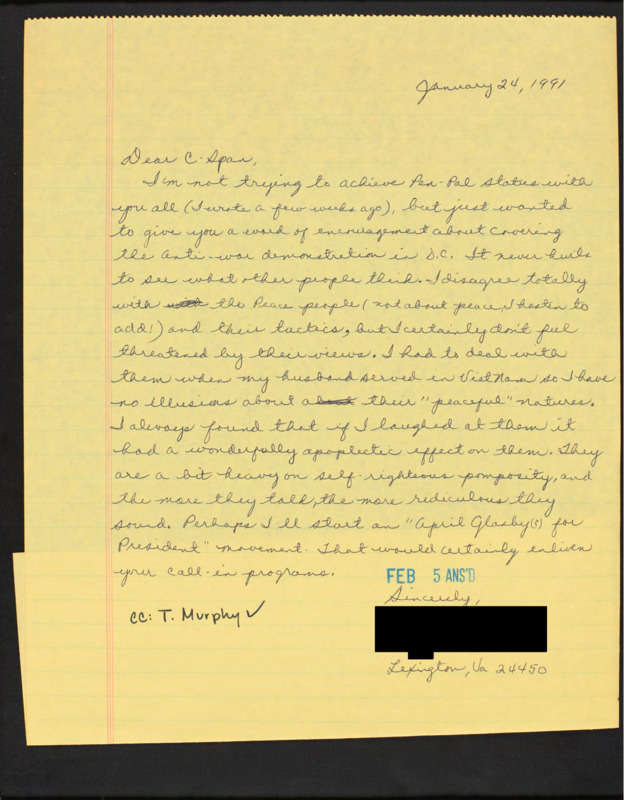 January 24, 1991
Dear C-Span,
I'm not trying to achieve Pen-Pal status with
you all (I wrote a few weeks ago), but just wanted
to give you a word of encouragement about covering
the anti-war demonstration in D.C. It never hurts
to see what other people think. I disagree totally
with the Peace people (not about peace, I hasten to
add!) and their tactics, but I certainly don't feel
threatened by their views. I had to deal with
them when my husband served in VietNam so I have
no illusions about their "peaceful" natures.
I always found that if I laughed at them it
had a wonderfully apoplectic effect on them. They
are a bit heavy on self-righteous pomposity, and
the more they talk, the more ridiculous they
sound. Perhaps I'll start an "April Glasby(s) for
President" movement. That would certainly enliven
your call-in programs.
FEB 5 ANS'D
Sincerely,
cc: T. Murphy ✓
Lexington, Va 24450